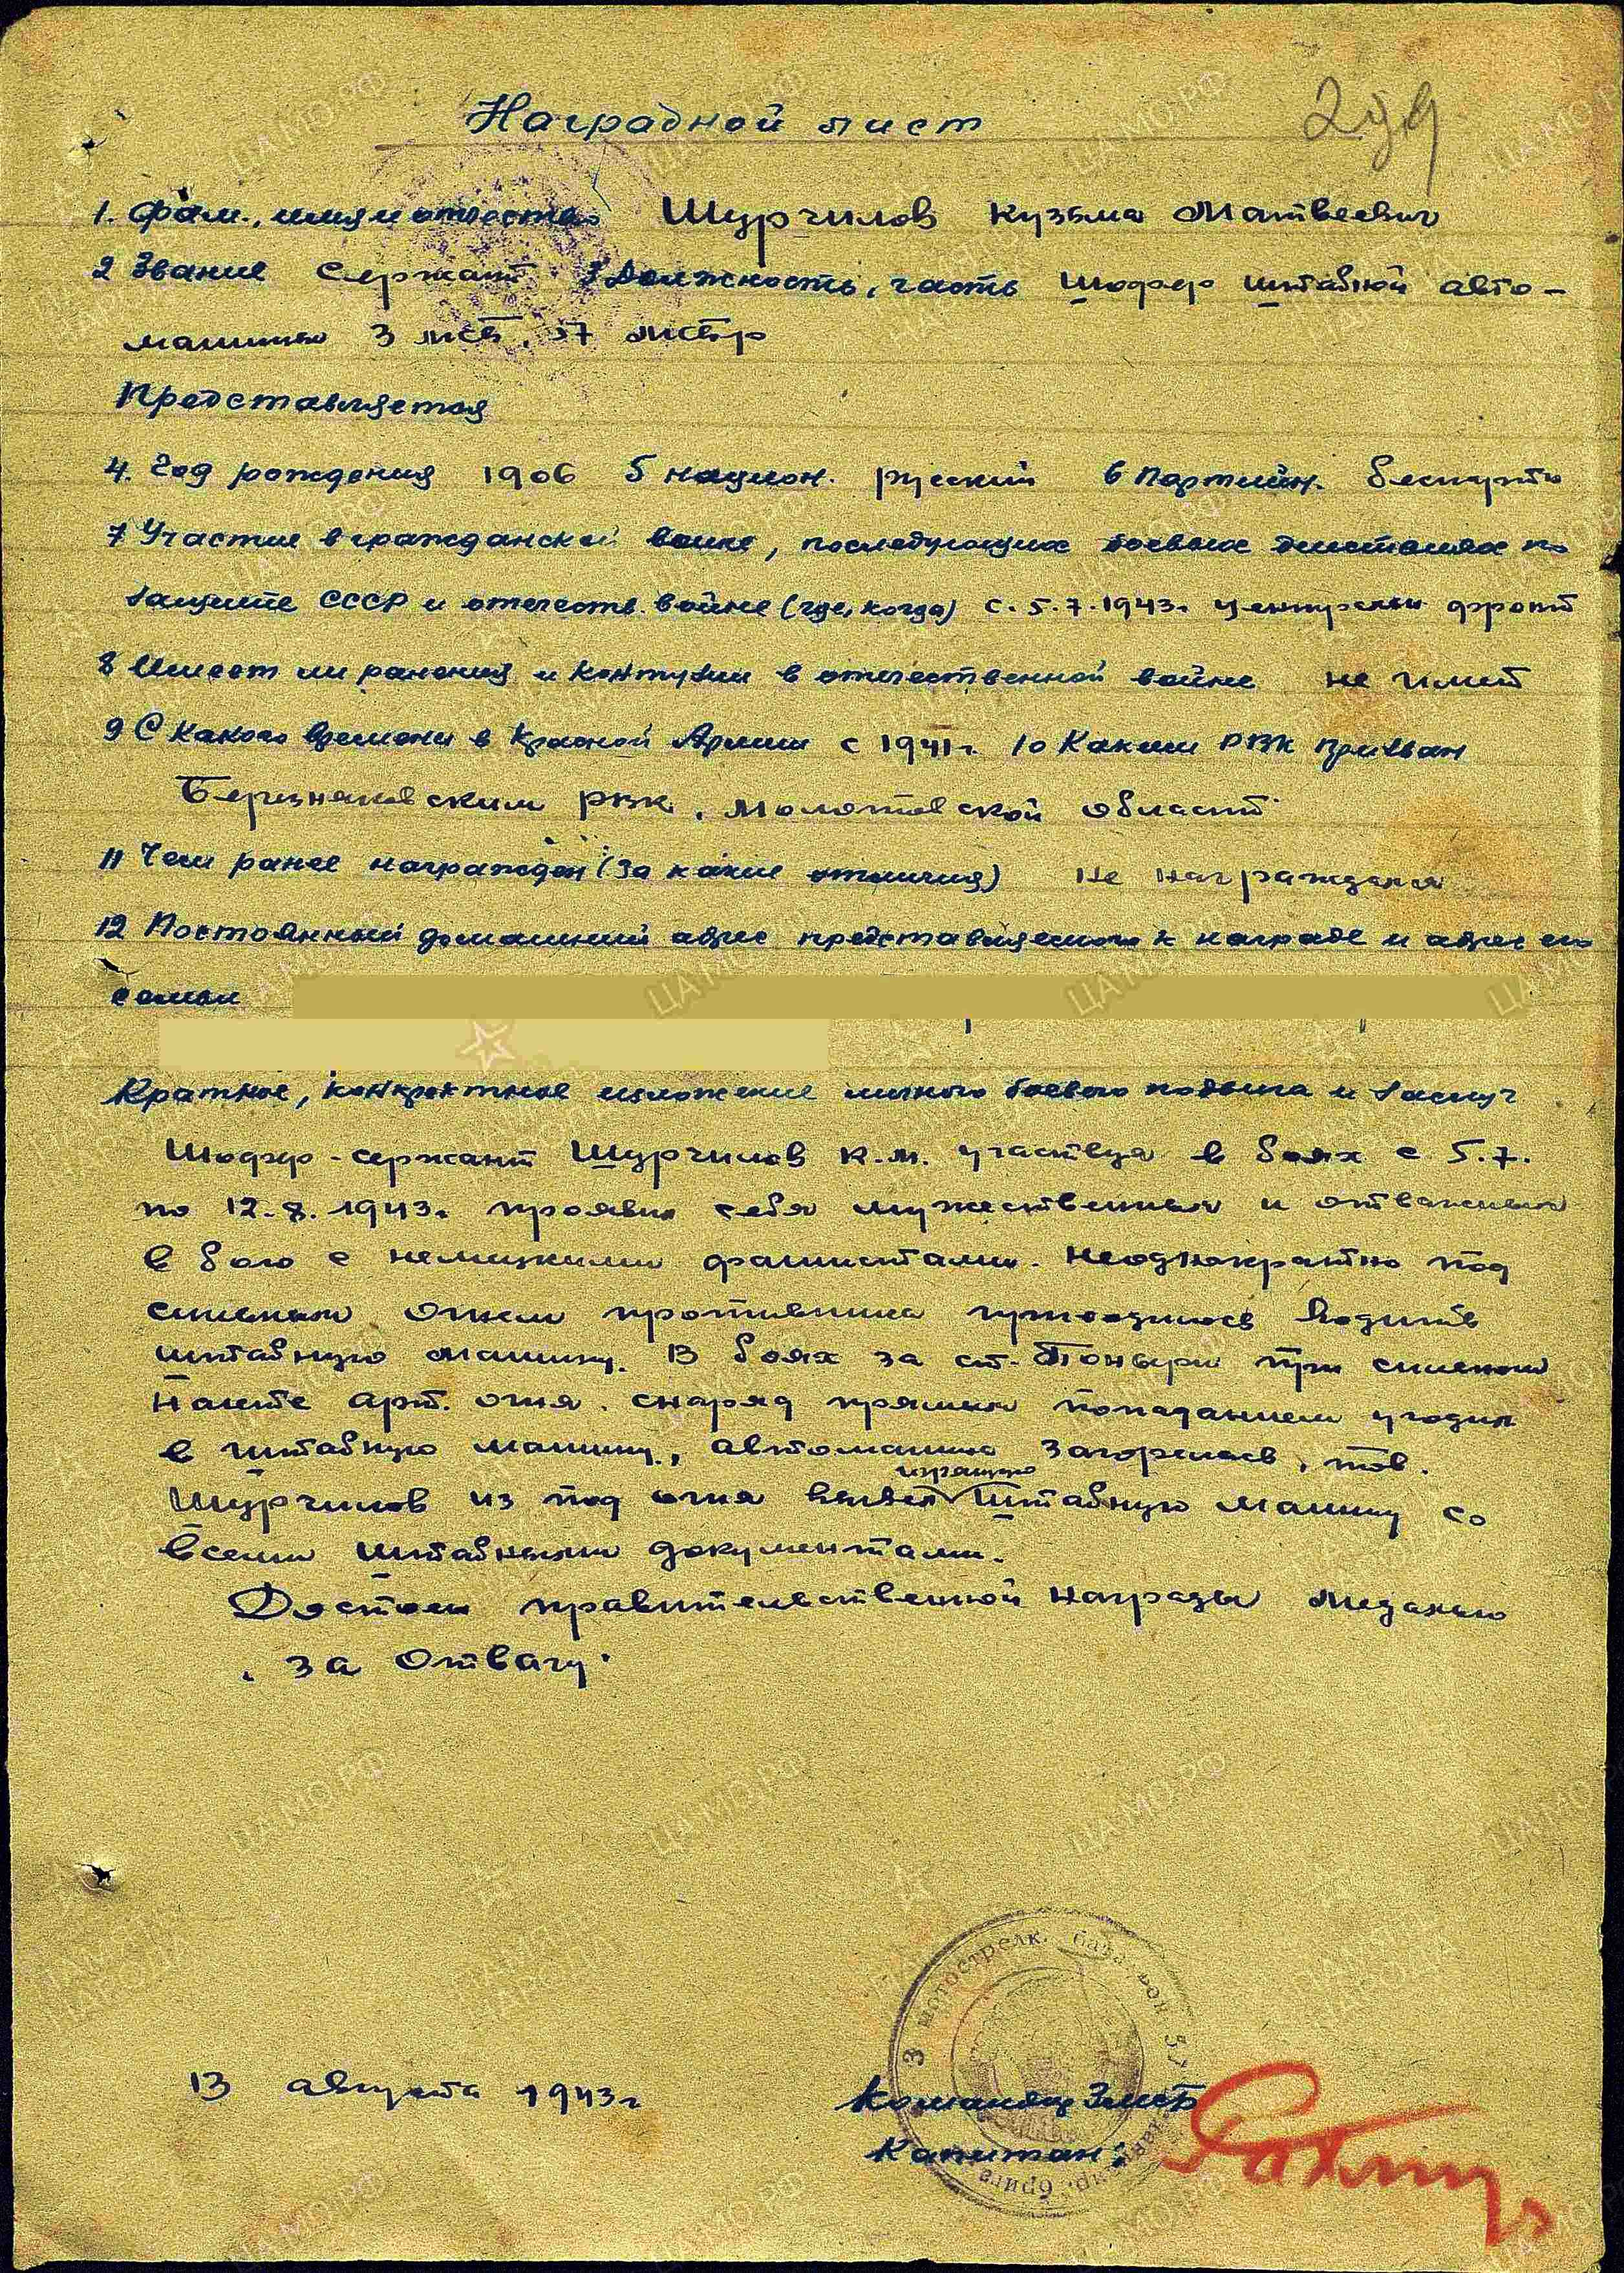 Наградной лист
1. Фам., имя и отчество Шурчилов Кузьма Матвеевич
2 Звание Сержант 3 Должность, часть Шофер штабной авто-
машины 3 мсб, 57 мсбр
Представляется
4. Год рождения 1906 5 национ. русский 6 Партийн. беспарт.
7 Участие в гражданской войне, последующих боевых действиях по
защите СССР и отечеств. войне (где, когда) с 5.7.1943г. Центральн. фронт
8 Имеет ли ранения и контузии в отечественной войне не имеет
9 С какого времени в Красной Армии с 1941г. 10 Каким РВК призван
Березняковским РВК, Молотовской области
11 Чем ранее награжден (за какие отличия) не награждался
12 Постоянный домашний адрес представляемого к награде и адрес его
семьи
Краткое, конкретное изложение личного боевого подвига и заслуг
Шофер-сержант Шурчилов К.М. участвуя в боях с 5.7.
по 12.8.1943г. проявил себя мужественным и отважным
в бою с немецкими фашистами. Неоднократно под
сильным огнем противника приходилось водить
штабную машину. В боях за ст. Поныри при сильном
налете арт. огня. снаряд прямым попаданием угодил
в штабную машину, автомашина загорелась, тов.
горящую
Шурчилов из под огня вывел штабную машину со
всеми штабными документами.
Достоин правительственной награды медалью
"За Отвагу"
3 мотострелк. батальон 57
бриг.
13 августа 1943г
Команд 3 мсб
Капитан:
ЦАМО.РФ